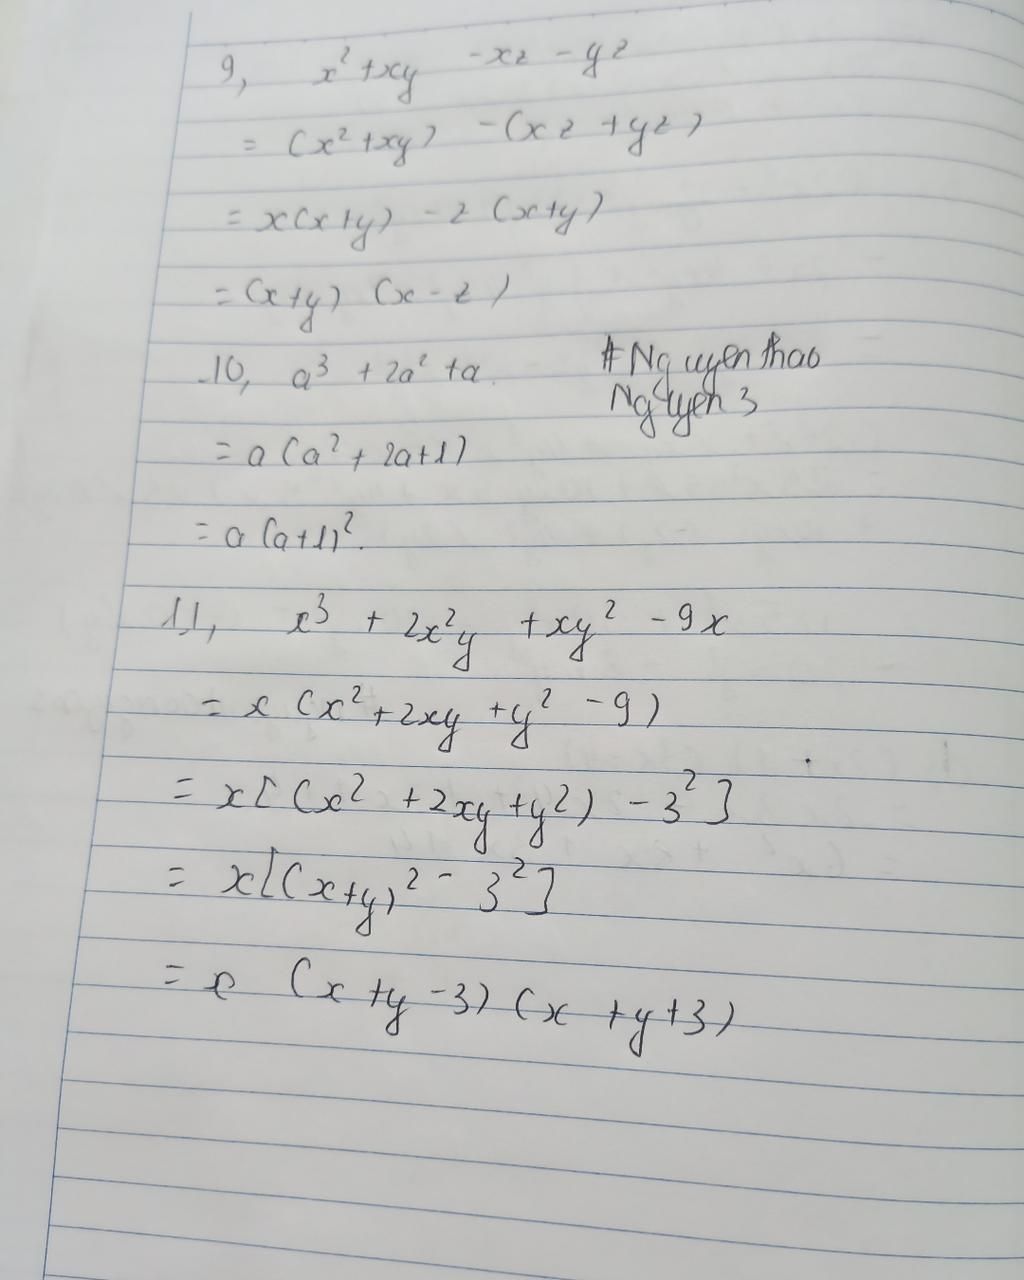 9, x² + xy - xz - yz
= (x² + xy) - (xz + yz)
= x(x + y) - z (x + y)
= (x + y) (x - z)
10, a³ + 2a² + a
#Nguyenthao
Nguyen3
= a (a² + 2a + 1)
= a (a + 1)².
11, x³ + 2x²y + xy² - 9x
= x (x² + 2xy + y² - 9)
= x [(x² + 2xy + y²) - 3²]
= x [(x + y)² - 3²]
= x (x + y - 3) (x + y + 3)